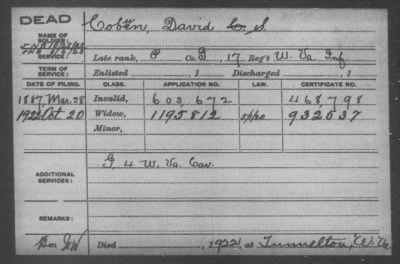 DEAD
NAME OF SOLDIER: Coben, David S
SERVICE: Late rank, P Co. G, 17 Reg't W. Va. Inf
TERM OF SERVICE: Enlisted , 1 Discharged , 1
DATE OF FILING. CLASS. APPLICATION NO. LAW. CERTIFICATE NO.
1887 Mar. 28 Invalid, 603,672 468,798
1922 Oct 20 Widow, 1195812 932537
Minor,
ADDITIONAL SERVICES: G 4 W. Va. Cav.
REMARKS:
Died , 1922, at Tunnelton, W. Va.